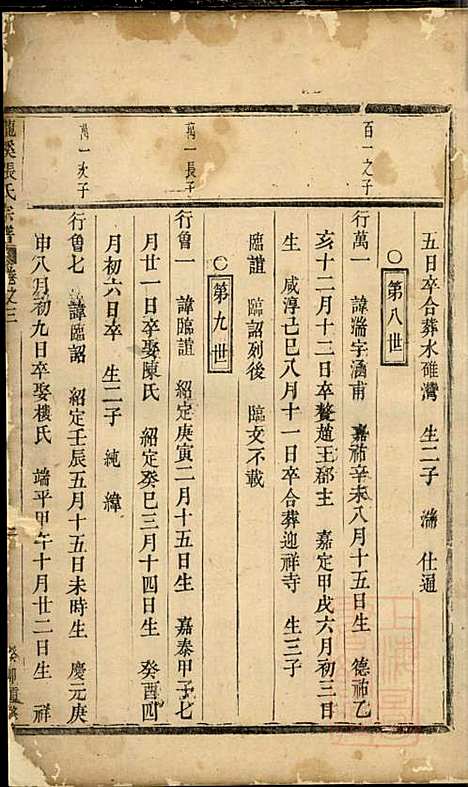 五日卒合葬水碓灣 生二子 潹 仕通
○第八世
百一之子
行萬一 諱潹字涵甫 嘉祐辛未八月十五日生 德祐乙
亥十二月十二日卒贅趙王郡主 嘉定甲戌六月初三日
生 咸淳古巳八月十一日卒合葬迎祥寺 生三子
臨誼 臨詔列後 臨文不載
○第九世
萬一長子
行魯一 諱臨誼 紹定庚寅二月十五日生 嘉泰甲子七
月廿一日卒娶陳氏 紹定癸巳三月十四日生 癸酉四
月初六日卒 生二子 純 緯
萬一次子
行魯七 諱臨詔 紹定壬辰五月十五日未時生 慶元庚
申八月初九日卒娶樓氏 端平甲午十月廿二日生 祥
龍溪張氏宗譜 卷之三